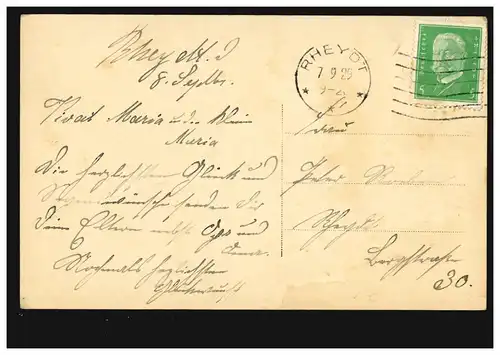 Rheydt.
8. Septbr.
Vivat Maria u. die kleine
Maria
Die herzlichsten Glück und
Segenswünsche senden dir
deine Eltern nebst und
Nochmals herzlichsten
Glückwunsch
RHEYDT
7.9.29
Frau
Peter
Rheydt
Bergstrasse
30.
5 5